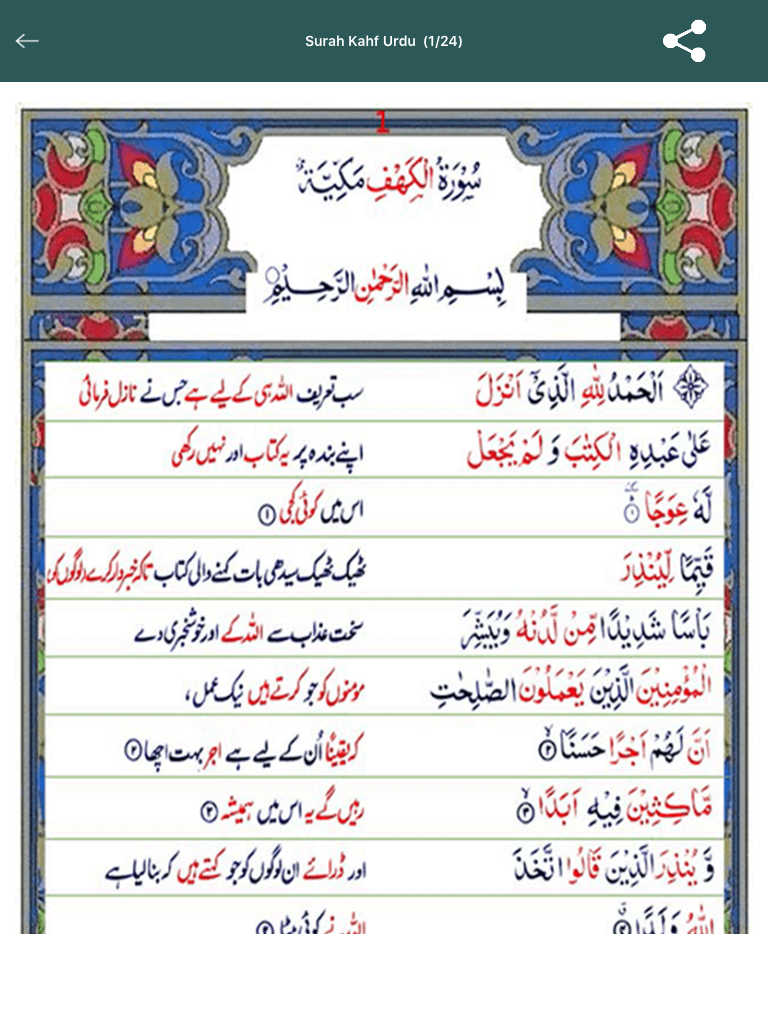 Surah Kahf Urdu (1/24)
1
سُوْرَةُ الْكَهْفِ مَكِّيَّةٌ
بِسْمِ اللهِ الرَّحْمٰنِ الرَّحِيْمِ
اَلْحَمْدُ لِلّٰهِ الَّذِیْۤ اَنْزَلَ سب تعریف اللہ ہی کے لیے ہے جس نے نازل فرمائی
عَلٰی عَبْدِهِ الْكِتٰبَ وَ لَمْ یَجْعَلْ اپنے بندہ پر یہ کتاب اور نہیں رکھی
لَّهٗ عِوَجًا ۱ اس میں کوئی کجی ۱
قَیِّمًا لِّیُنْذِرَ ٹھیک ٹھیک سیدھی بات کہنے والی کتاب تاکہ خبردار کرے (لوگوں کو)
بَاْسًا شَدِیْدًا مِّنْ لَّدُنْهُ وَیُبَشِّرَ سخت عذاب سے اللہ کے اور خوشخبری دے
الْمُؤْمِنِیْنَ الَّذِیْنَ یَعْمَلُوْنَ الصّٰلِحٰتِ مومنوں کو جو کرتے ہیں نیک عمل،
اَنَّ لَهُمْ اَجْرًا حَسَنًا ۲ کہ یقیناً اُن کے لیے ہے اجر بہت اچھا ۲
مَّاكِثِیْنَ فِیْهِ اَبَدًا ۳ رہیں گے یہ اس میں ہمیشہ ۳
وَّ یُنْذِرَ الَّذِیْنَ قَالُوا اتَّخَذَ اور ڈرائے ان لوگوں کو جو کہتے ہیں کہ بنا لیا ہے
اللهُ وَلَدًا ۴ اللہ نے کوئی بیٹا ۴